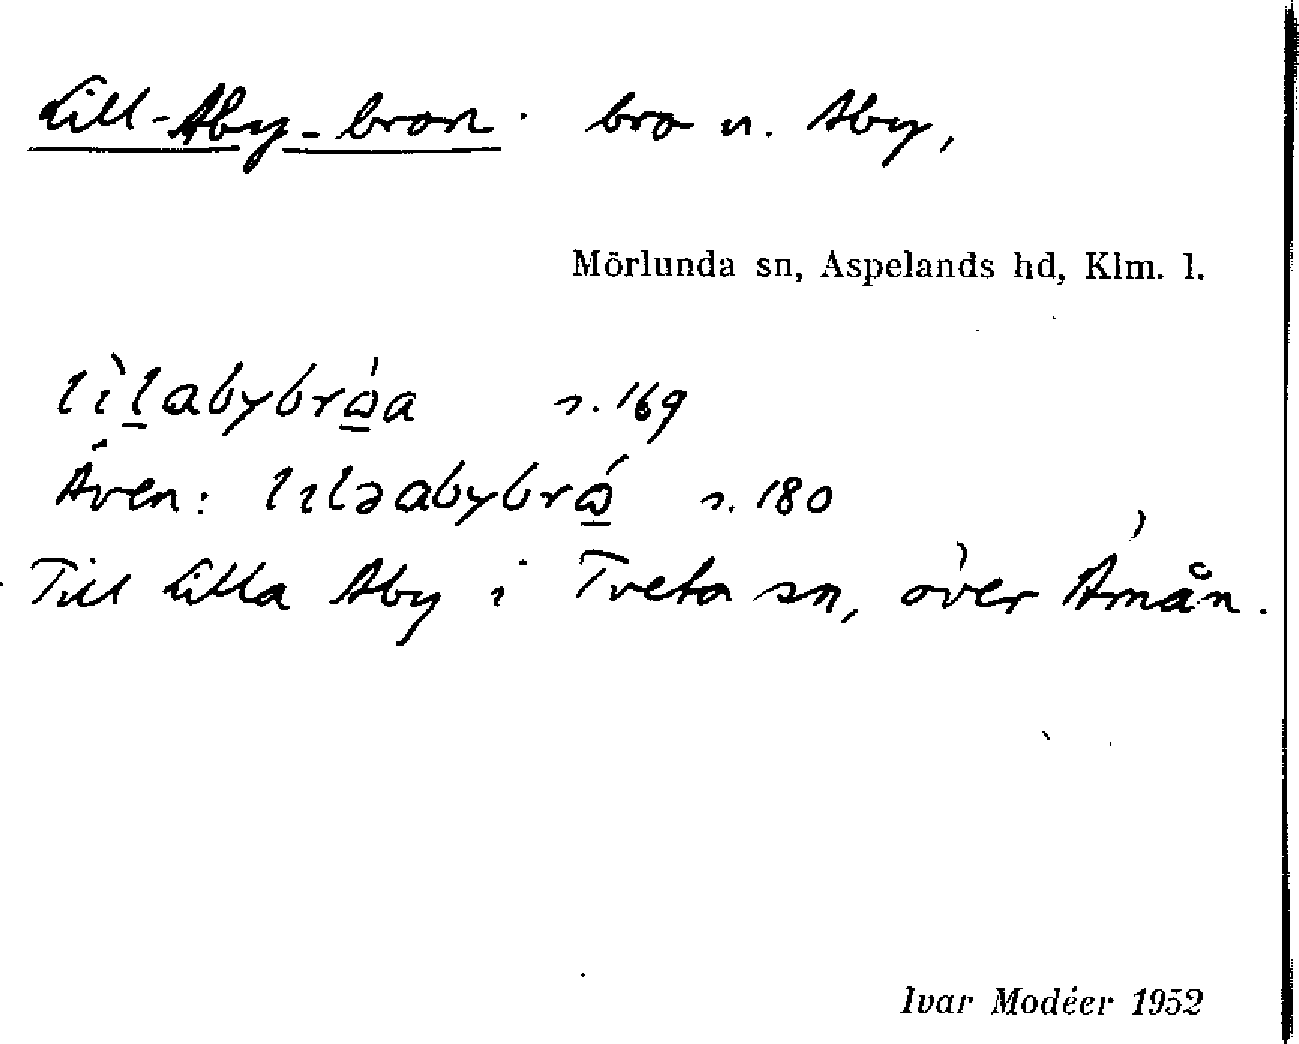 Lill-Aby-bron. bro n. Aby,
Mörlunda sn, Aspelands hd, Klm. l.
lìlabybrɷ́a s. 169
Även: lıləabybrɷ́ s. 180
Till Lilla Aby i Tveta sn, över Åmån.
Ivar Modéer 1952